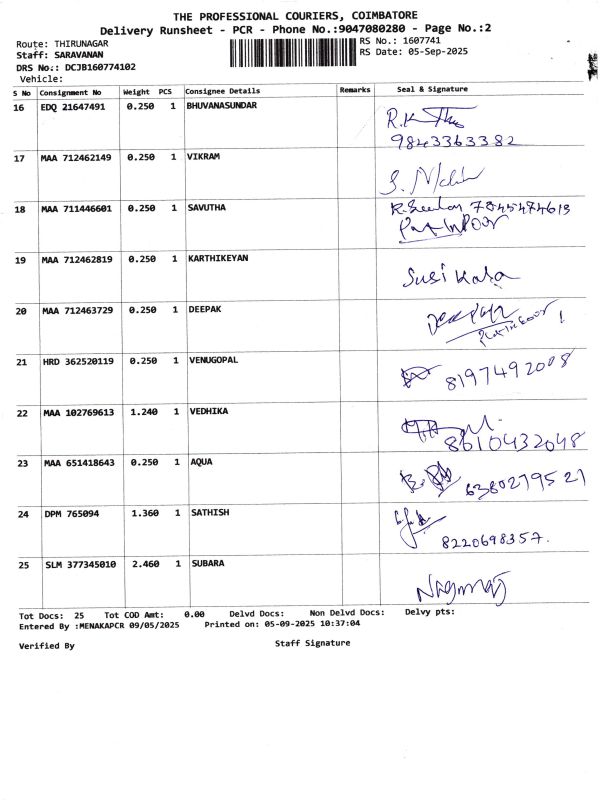 THE PROFESSIONAL COURIERS, COIMBATORE
Delivery Runsheet - PCR - Phone No.:9047080280 - Page No.:2
Route: THIRUNAGAR
RS No.: 1607741
Staff: SARAVANAN
RS Date: 05-Sep-2025
DRS No.: DCJB160774102
Vehicle:
S No Consignment No Weight PCS Consignee Details Remarks Seal & Signature
16 EDQ 21647491 0.250 1 BHUVANASUNDAR
9843363382
17 MAA 712462149 0.250 1 VIKRAM
18 MAA 711446601 0.250 1 SAVUTHA
7845474613
19 MAA 712462819 0.250 1 KARTHIKEYAN
Susi Kala
20 MAA 712463729 0.250 1 DEEPAK
21 HRD 362520119 0.250 1 VENUGOPAL
8197492008
22 MAA 102769613 1.240 1 VEDHIKA
8610432048
23 MAA 651418643 0.250 1 AQUA
6380279521
24 DPM 765094 1.360 1 SATHISH
8220698357.
25 SLM 377345010 2.460 1 SUBARA
Nagaraj
Tot Docs: 25 Tot COD Amt: 0.00 Delvd Docs: Non Delvd Docs: Delvy pts:
Entered By :MENAKAPCR 09/05/2025 Printed on: 05-09-2025 10:37:04
Verified By Staff Signature